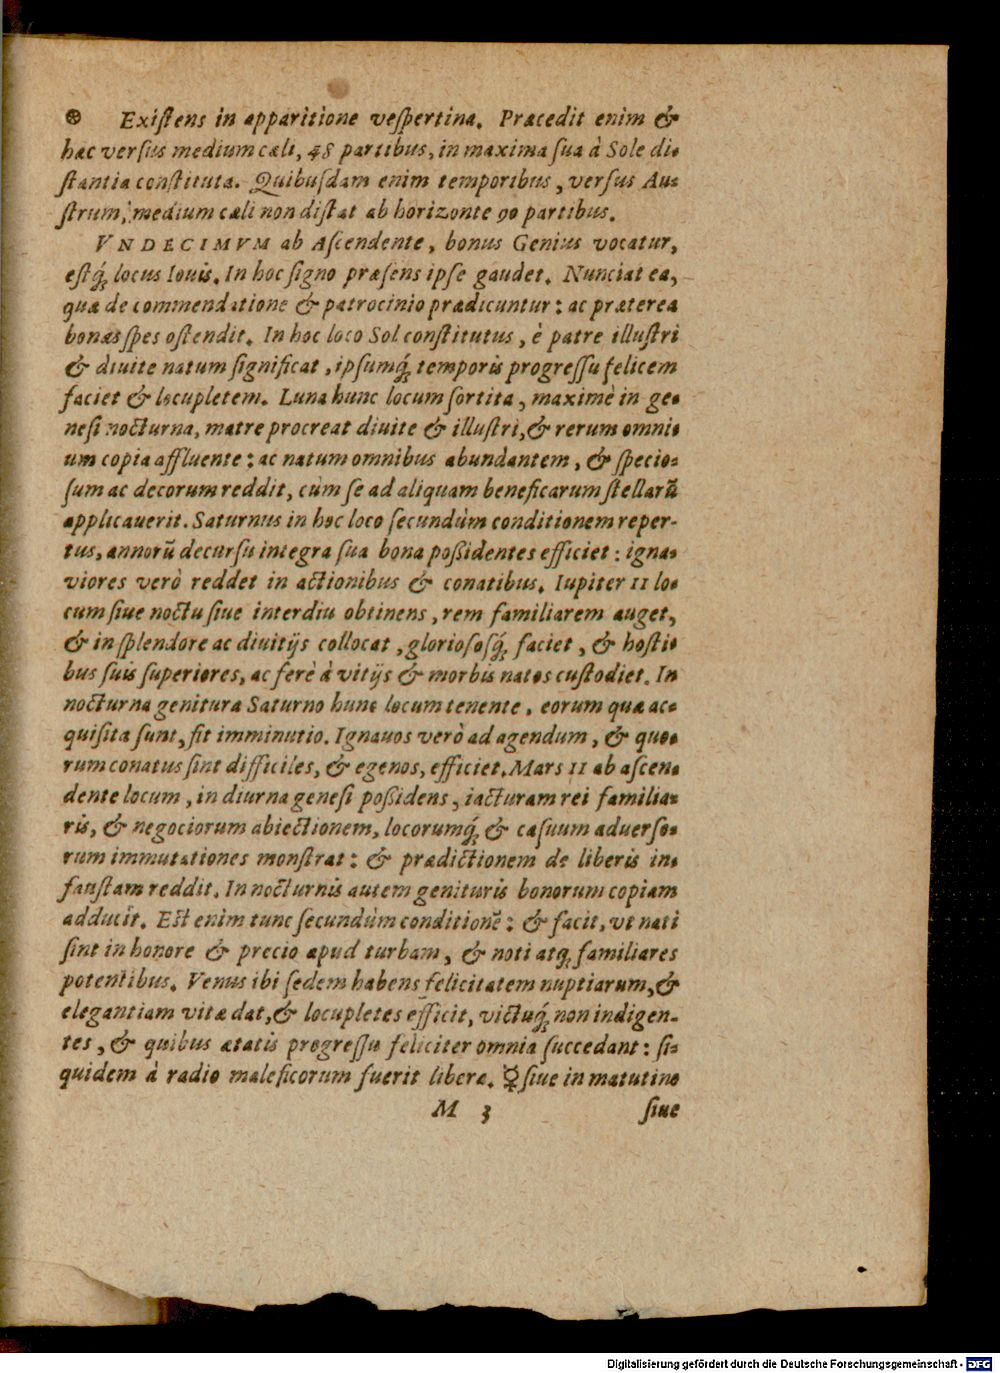 ⊛ Exiſtens in apparitione veſpertina. Præcedit enim &
hac verſus medium cæli, 48 partibus, in maxima ſua à Sole di-
ſtantia conſtituta. Quibuſdam enim temporibus, verſus Au-
ſtrum, medium cæli non diſtat ab horizonte 90 partibus.
VNDECIMVM ab Aſcendente, bonus Genius vocatur,
eſtq́; locus Iouis. In hoc ſigno præſens ipſe gaudet. Nunciat ea,
quæ de commendatione & patrocinio prædicuntur: ac præterea
bonas ſpes oſtendit. In hoc loco Sol conſtitutus, è patre illuſtri
& diuite natum ſignificat, ipſumq́; temporis progreſſu felicem
faciet & locupletem. Luna hunc locum ſortita, maximè in ge-
neſi nocturna, matre procreat diuite & illuſtri, & rerum omni-
um copia affluente: ac natum omnibus abundantem, & ſpecio-
ſum ac decorum reddit, cùm ſe ad aliquam beneficarum ſtellarũ
applicauerit. Saturnus in hoc loco ſecundùm conditionem reper-
tus, annorũ decurſu integra ſua bona poßidentes efficiet: igna-
viores verò reddet in actionibus & conatibus. Iupiter 11 lo-
cum ſiue noctu ſiue interdiu obtinens, rem familiarem auget,
& in ſplendore ac diuitijs collocat, glorioſoſq́; faciet, & hoſti-
bus ſuis ſuperiores, ac ferè à vitijs & morbis natos cuſtodiet. In
nocturna genitura Saturno hunc locum tenente, eorum quæ ac-
quiſita ſunt, fit imminutio. Ignauos verò ad agendum, & quo-
rum conatus ſint difficiles, & egenos, efficiet. Mars 11 ab aſcen-
dente locum, in diurna geneſi poßidens, iacturam rei familia-
ris, & negociorum abiectionem, locorumq́; & caſuum aduerſo-
rum immutationes monſtrat: & prædictionem de liberis in-
fauſtam reddit. In nocturnis autem genituris bonorum copiam
adducit. Eſt enim tunc ſecundùm conditionẽ: & facit, vt nati
ſint in honore & precio apud turbam, & noti atq́; familiares
potentibus. Venus ibi ſedem habens felicitatem nuptiarum, &
elegantiam vitæ dat, & locupletes efficit, victuq́; non indigen-
tes, & quibus ætatis progreſſu feliciter omnia ſuccedant: ſi-
quidem à radio maleficorum fuerit libera. ☿ ſiue in matutino
M 3 ſiue
Digitalisierung gefördert durch die Deutsche Forschungsgemeinschaft - DFG